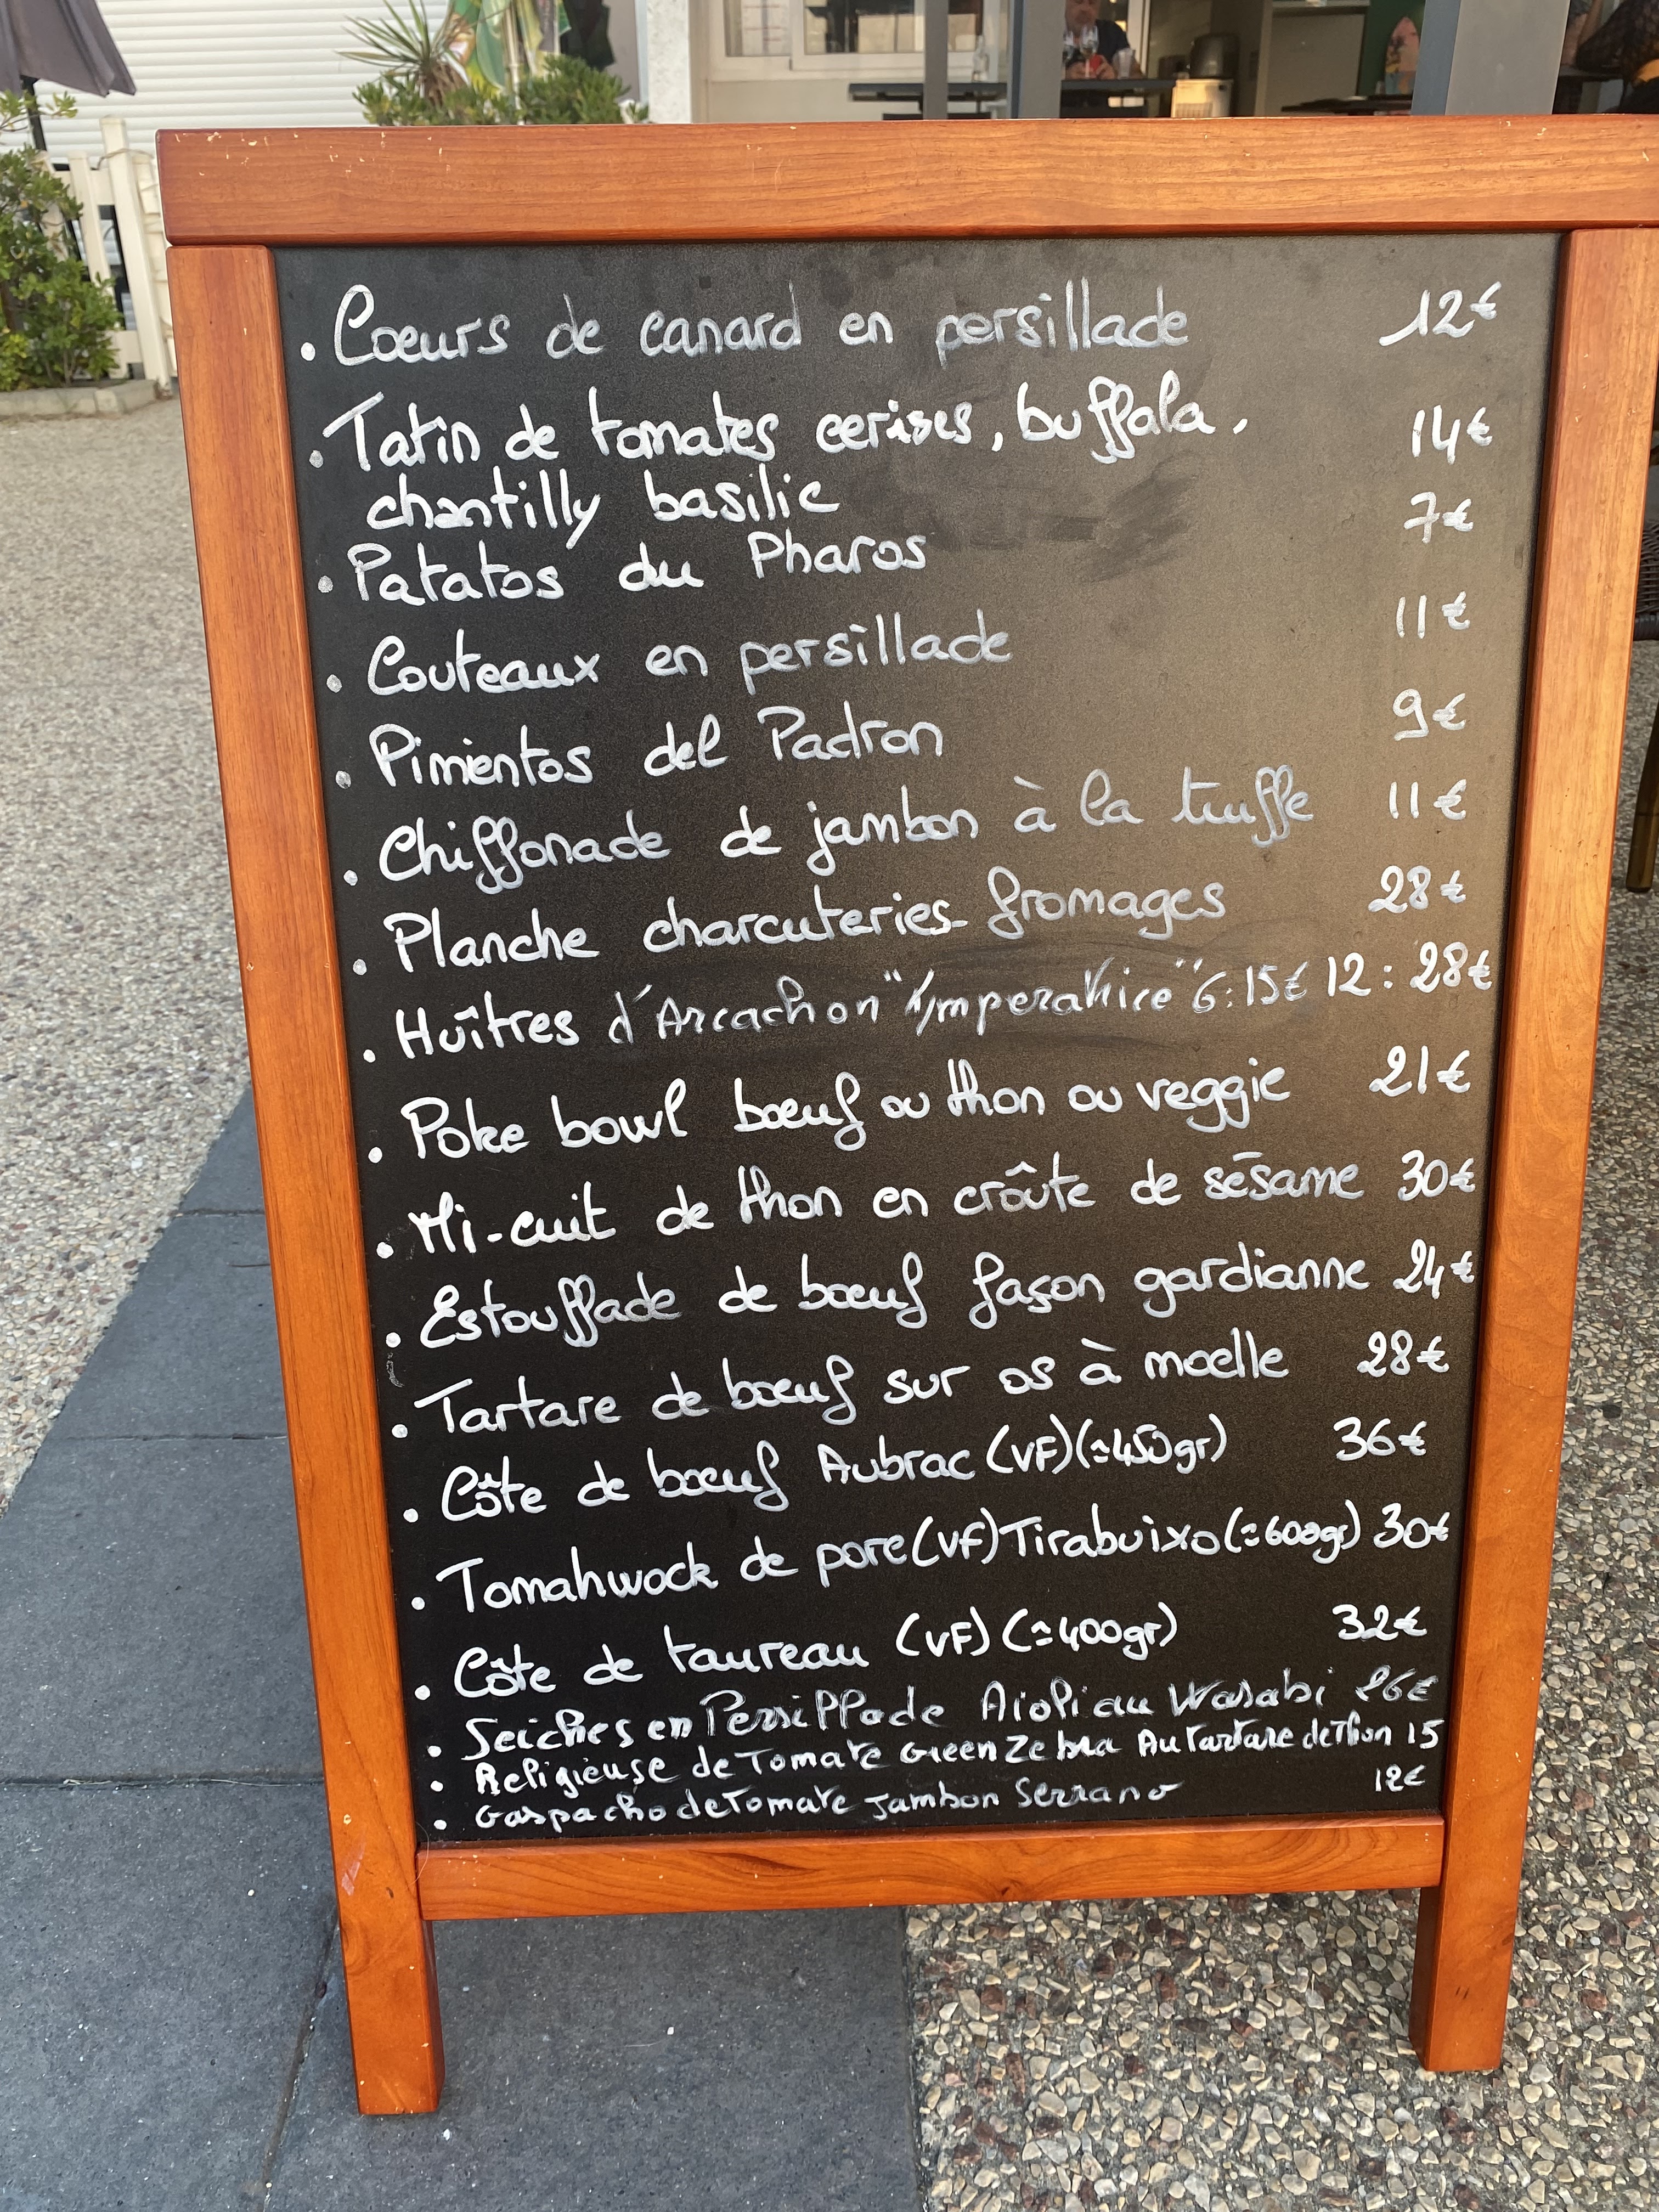 • Coeurs de canard en persillade 12€
• Tatin de tomates cerises, buffala, 14€
chantilly basilic
• Patatos du Pharos 7€
• Couteaux en persillade 11€
• Pimientos del Padron 9€
• Chiffonade de jambon à la truffe 11€
• Planche charcuteries-fromages 28€
• Huîtres d'Arcachon "Imperatrice" 6:15€ 12:28€
• Poke bowl bœuf ou thon ou veggie 21€
• Mi-cuit de thon en croûte de sésame 30€
• Estouffade de bœuf façon gardianne 24€
• Tartare de bœuf sur os à moelle 28€
• Côte de bœuf Aubrac (VF) (≃450gr) 36€
• Tomahwock de porc (VF) Tirabuixo (≃600gr) 30€
• Côte de taureau (VF) (≃400gr) 32€
• Seiches en Persillade Aioli au Wasabi
• Religieuse de Tomate Green Zebra Au Tartare de Thon 15
• Gaspacho de Tomate Jambon Serrano 12€